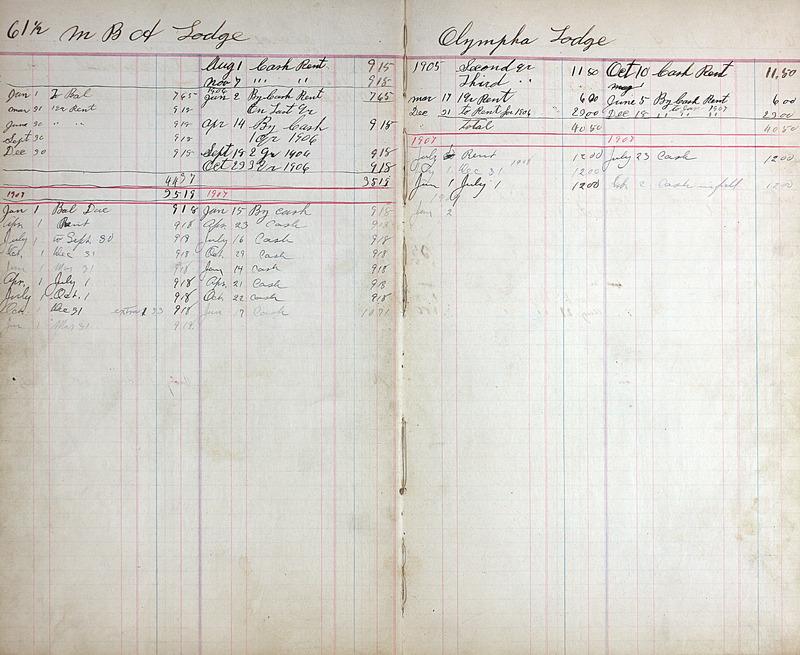 61 1/2 M B A Lodge
Aug 1 Cash Rent 9 15
Nov 7 " " 9 18
1906
Jan 1 To Bal 7 65 Jan 2 By Cash Rent 7 65
Mar 31 1 Qr Rent 9 18 On Last Qr
June 30 " " 9 18 Apr 14 By Cash 9 18
Sept 30 9 18 1 Qr 1906
Dec 30 9 18 Sept 19 2 Qr 1906 9 18
Oct 29 3 Qr 1906 9 18
44 37 35 19
1907 35 19 1907
Jan 1 Bal Due 9 18 Jan 15 By cash 9 18
Apr 1 Rent 9 18 Apr 23 Cash 9 18
July 1 to Sept 30 9 18 July 16 Cash 9 18
Oct. 1 Dec 31 9 18 Oct. 29 Cash 9 18
Jan 1 Mar 31 9 18 Jan 14 Cash 9 18
Apr. 1 July 1 9 18 Apr. 21 Cash 9 18
July 1 Oct. 1 9 18 Oct 22 Cash 9 18
Oct. 1 Dec 31 extra 1 53 9 18 Jan 17 Cash 10 71
Jan 1 Mar 31 9 18
Olympha Lodge
1905 Second Qr 11 50 Oct 10 Cash Rent 11.50
Third " "
Mar 17 1 Qr Rent 6 00 June 5 By Cash Rent 6 00
Dec 31 to Rent for 1906 23 00 Dec 18 " " " 23 00
to Jan 1907
Total 40 50 40 50
1907 1907
July Rent 12 00 July 23 Cash 12 00
Dec 31 1908 12 00
Jan 1 July 1 12 00 2 Cash in full 12 00
Jan 2